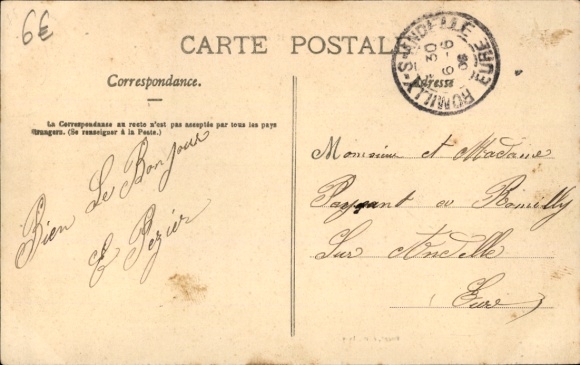 6€
CARTE POSTALE
ROMILLY-S-ANDELLE
EURE
Correspondance.
Adresse
La Correspondance au recto n'est pas acceptée par tous les pays
étrangers. (Se renseigner à la Poste.)
Bien Le Bonjour
E Bezier
Monsieur et Madame
a Romilly
Sur Andelle
(Eure)